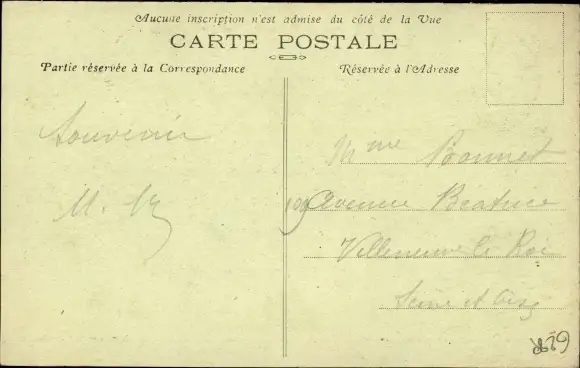 Aucune inscription n'est admise du côté de la Vue
CARTE POSTALE
Partie réservée à la Correspondance
Réservée à l'Adresse
Souvenir
M.
Mme Bonnet
Avenue Béatrice
Villeneuve le Roi
Seine et Oise